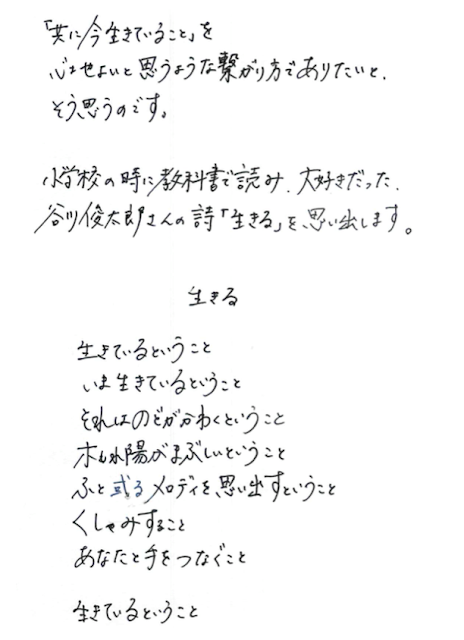 「共に今生きていること」を
心よせよいと思うような繋がり方でありたいと、
そう思うのです。
小学校の時に教科書で読み、大好きだった、
谷川俊太郎さんの詩「生きる」を思い出します。
生きる
生きているということ
いま生きているということ
それはのどがかわくということ
木もれ陽がまぶしいということ
ふと或るメロディを思い出すということ
くしゃみすること
あなたと手をつなぐこと
生きているということ